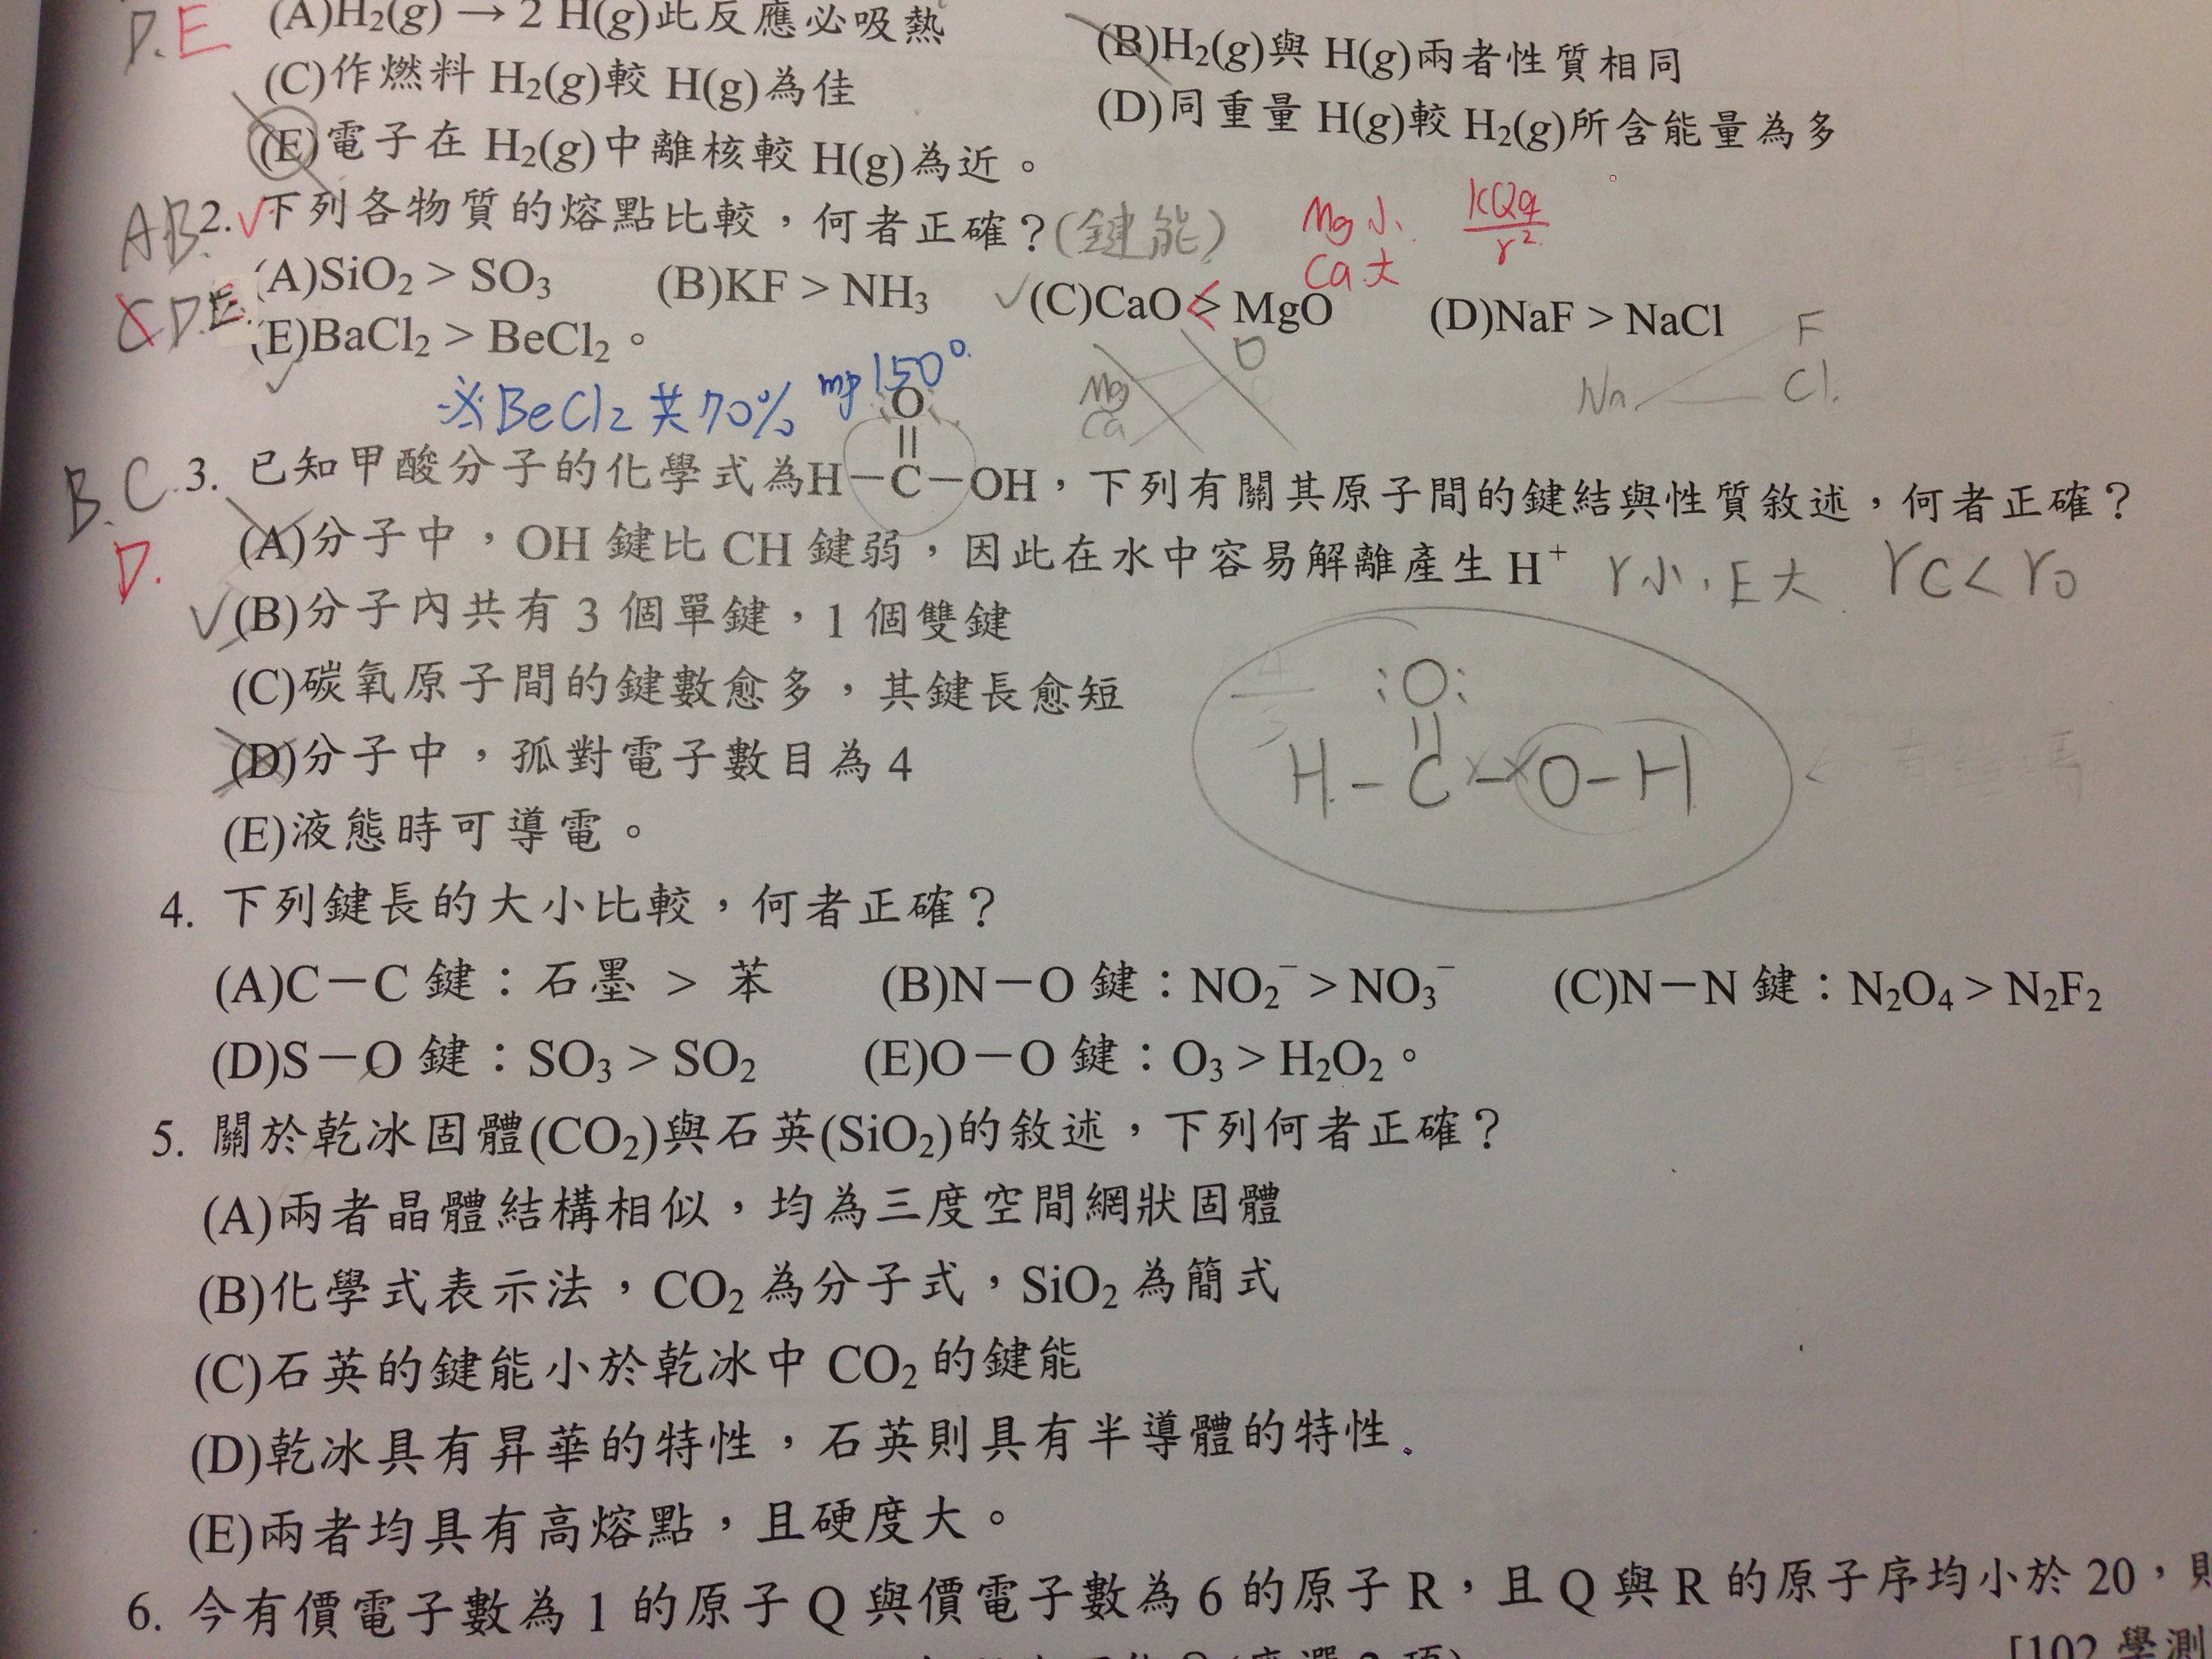 D.E (A)H₂(g) → 2 H(g)此反應必吸熱 (B)H₂(g)與 H(g)兩者性質相同
(C)作燃料 H₂(g)較 H(g)為佳 (D)同重量 H(g)較 H₂(g)所含能量為多
(E)電子在 H₂(g)中離核較 H(g)為近。
AB. 2. 下列各物質的熔點比較,何者正確?(鍵能) Mg小. KQq/r²
Ca大
CD.E. (A)SiO₂ > SO₃ (B)KF > NH₃ (C)CaO > < MgO (D)NaF > NaCl
(E)BaCl₂ > BeCl₂。
※BeCl₂ 共70% mp150°
Mg Ca O
Na F Cl.
B.C D. 3. 已知甲酸分子的化學式為H-C(=O)-OH,下列有關其原子間的鍵結與性質敘述,何者正確?
(A)分子中,OH 鍵比 CH 鍵弱,因此在水中容易解離產生 H⁺ r小,E大 rC<rO
(B)分子內共有 3 個單鍵,1 個雙鍵
(C)碳氧原子間的鍵數愈多,其鍵長愈短
:O:
||
(D)分子中,孤對電子數目為 4 H-C-O-H
(E)液態時可導電。
4. 下列鍵長的大小比較,何者正確?
(A)C-C 鍵:石墨 > 苯 (B)N-O 鍵:NO₂⁻ > NO₃⁻ (C)N-N 鍵:N₂O₄ > N₂F₂
(D)S-O 鍵:SO₃ > SO₂ (E)O-O 鍵:O₃ > H₂O₂。
5. 關於乾冰固體(CO₂)與石英(SiO₂)的敘述,下列何者正確?
(A)兩者晶體結構相似,均為三度空間網狀固體
(B)化學式表示法,CO₂ 為分子式,SiO₂ 為簡式
(C)石英的鍵能小於乾冰中 CO₂ 的鍵能
(D)乾冰具有昇華的特性,石英則具有半導體的特性
(E)兩者均具有高熔點,且硬度大。
6. 今有價電子數為 1 的原子 Q 與價電子數為 6 的原子 R,且 Q 與 R 的原子序均小於 20,則
[102 學測